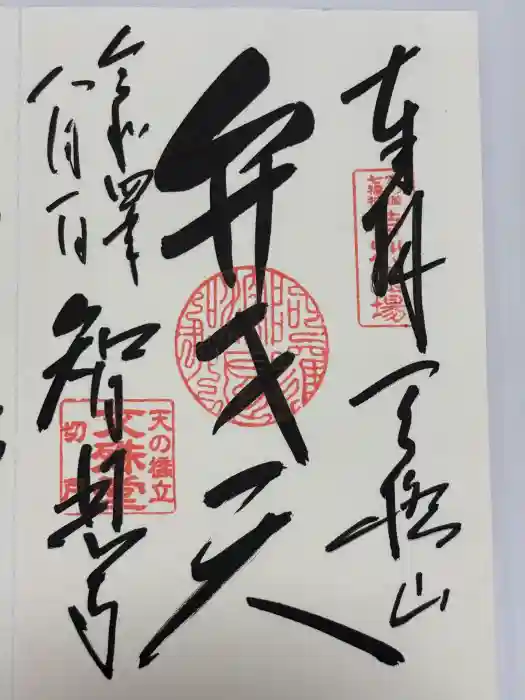 奉拝 天橋山
弁才天
令和四年
八月一日
智恩寺
天の橋立
文殊堂
切戸